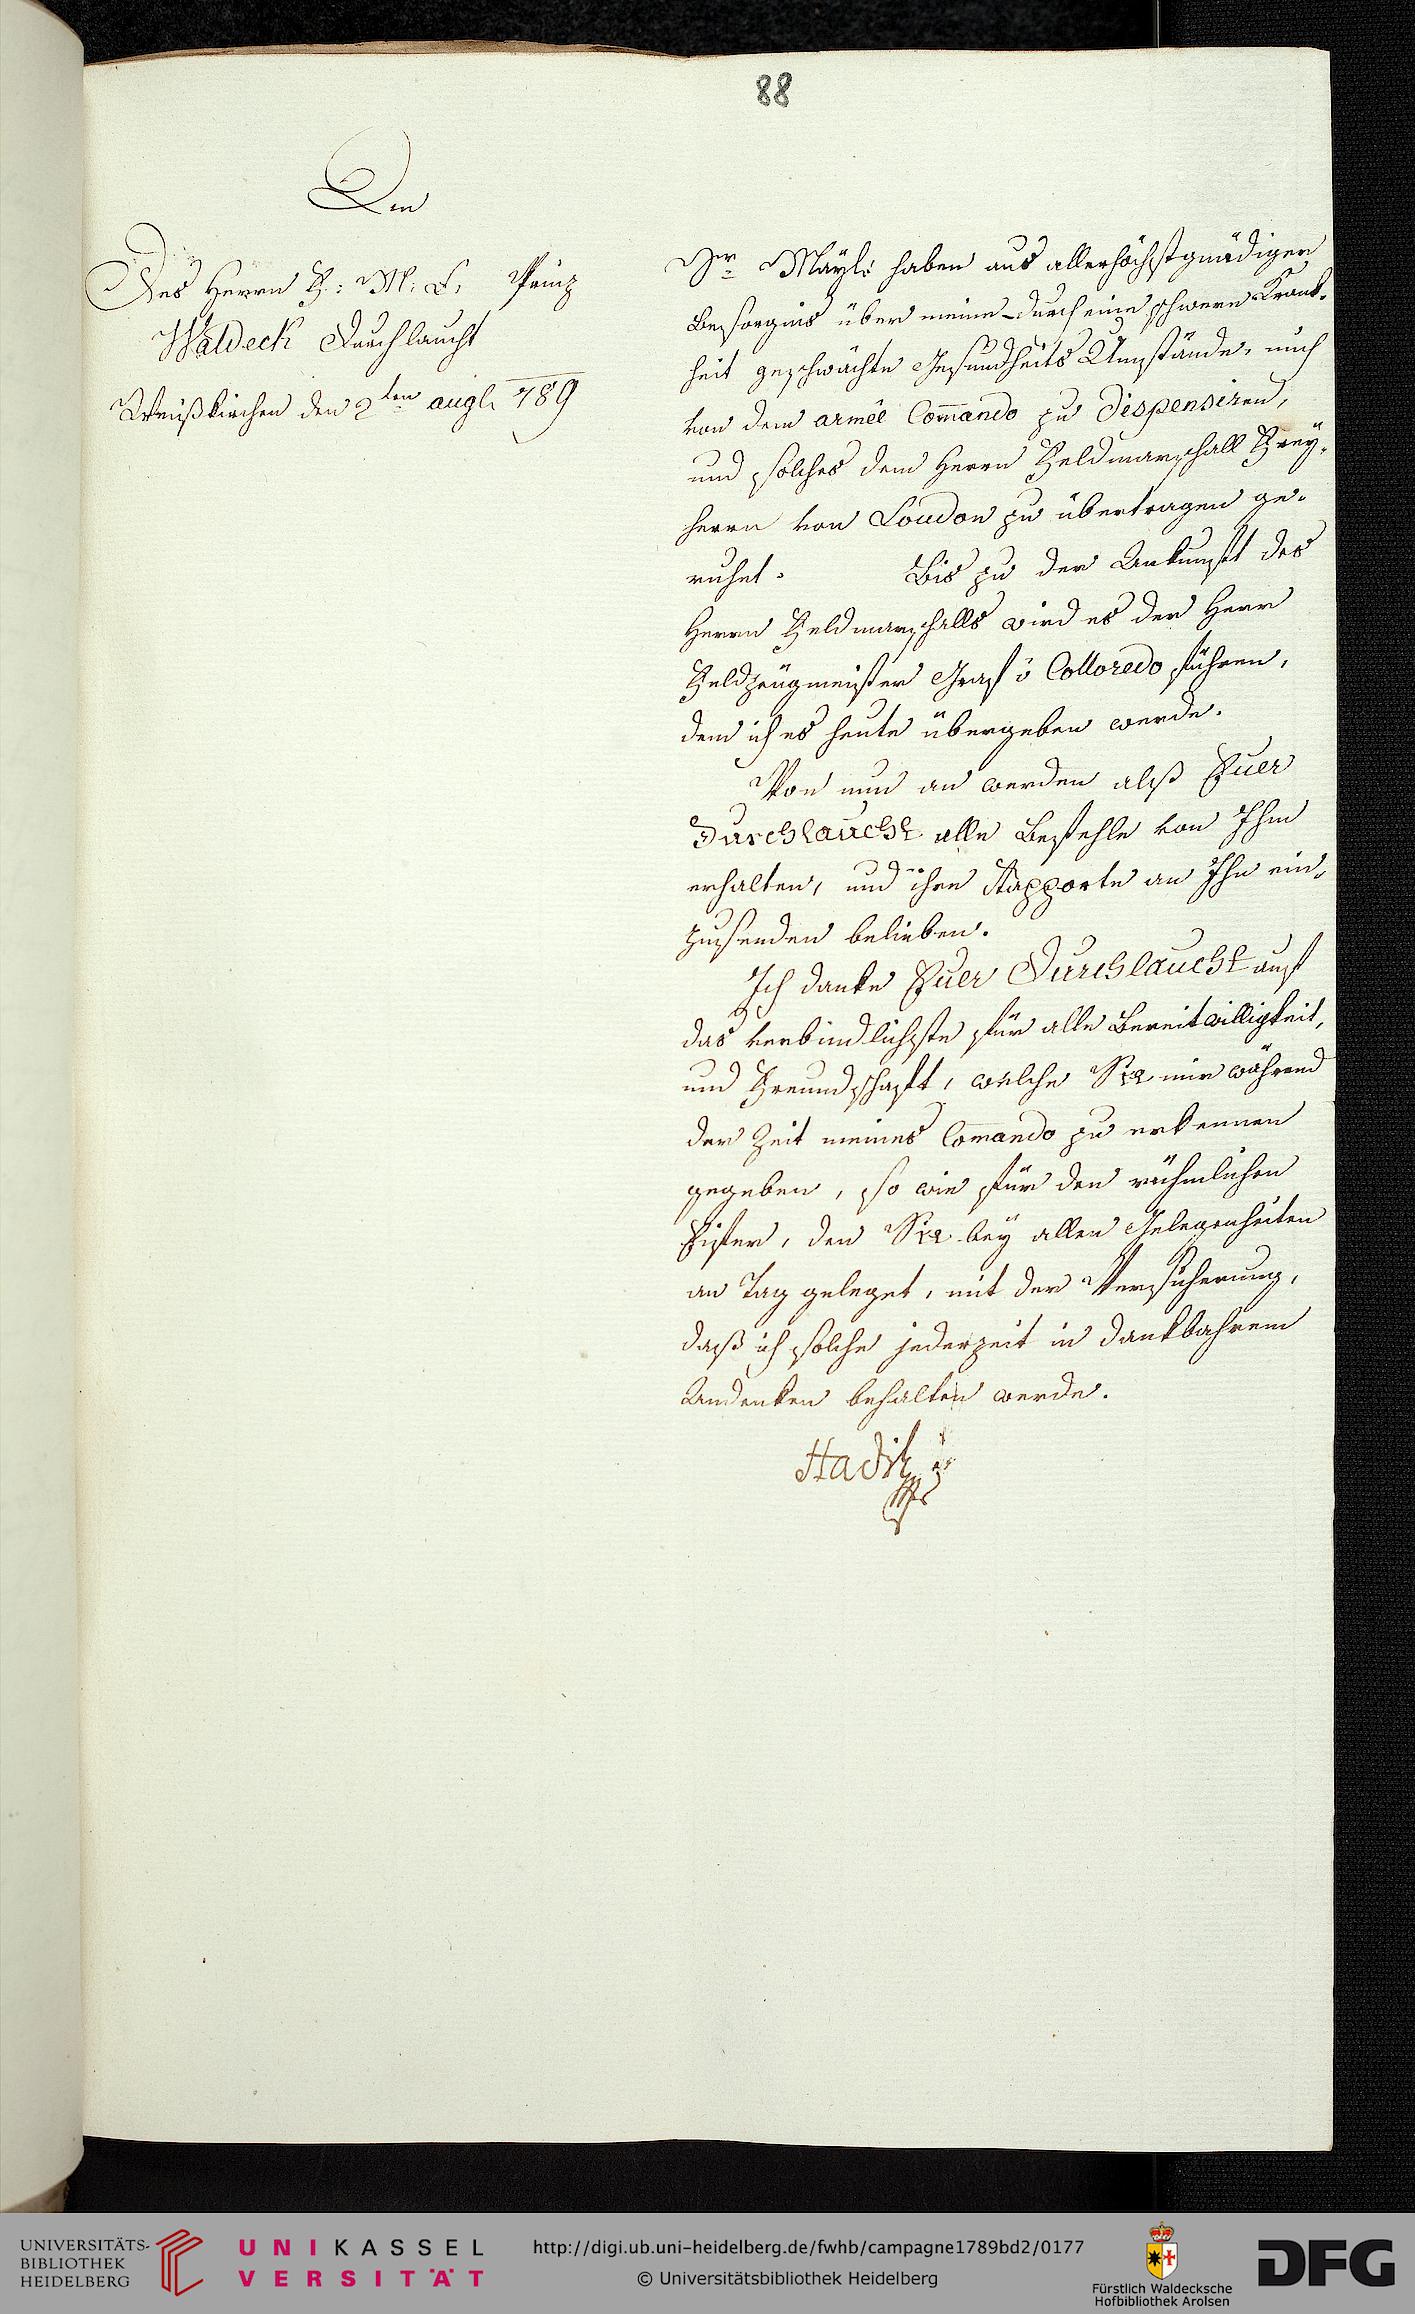 88
An
Des Herrn F: M: L: Prinz
Waldeck Durchlaucht
Weißkirchen den 2ten augl. 789
Sr Mäyl: haben aus allerhöchstgnädiger
Besorgnis über meine durch eine schwere Krank-
heit geschwächte Gesundheits Umstände, mich
von dem armée Com̄ando zu dispensiren,
und solches dem Herrn Feldmarschall Frey-
herrn von Loudon zu übertragen ge-
ruhet. Bis zu der Ankunft des
Herrn Feldmarschalls wird es der Herr
Feldzeugmeister Graf v Colloredo führen,
dem ich es heute übergeben werde.
Von nun an werden also Euer
Durchlaucht alle Befehle von Ihm
erhalten, und ihre Rapporte an Ihn ein-
zusenden belieben.
Ich danke Euer Durchlaucht auf
das verbindlichste für alle Bereitwilligkeit,
und Freundschaft, welche Sie mir während
der Zeit meines Com̄ando zu erkennen
gegeben, so wie für den rühmlichen
Eifer, den Sie bey allen Gelegenheiten
an Tag geleget, mit der Versicherung,
daß ich solche jederzeit in dankbahrem
Andenken behalten werde.
Hadik
UNIVERSITÄTS-
BIBLIOTHEK
HEIDELBERG
UNIKASSEL
VERSITÄT
http://digi.ub.uni-heidelberg.de/fwhb/campagne1789bd2/0177
© Universitätsbibliothek Heidelberg
Fürstlich Waldecksche
Hofbibliothek Arolsen
DFG